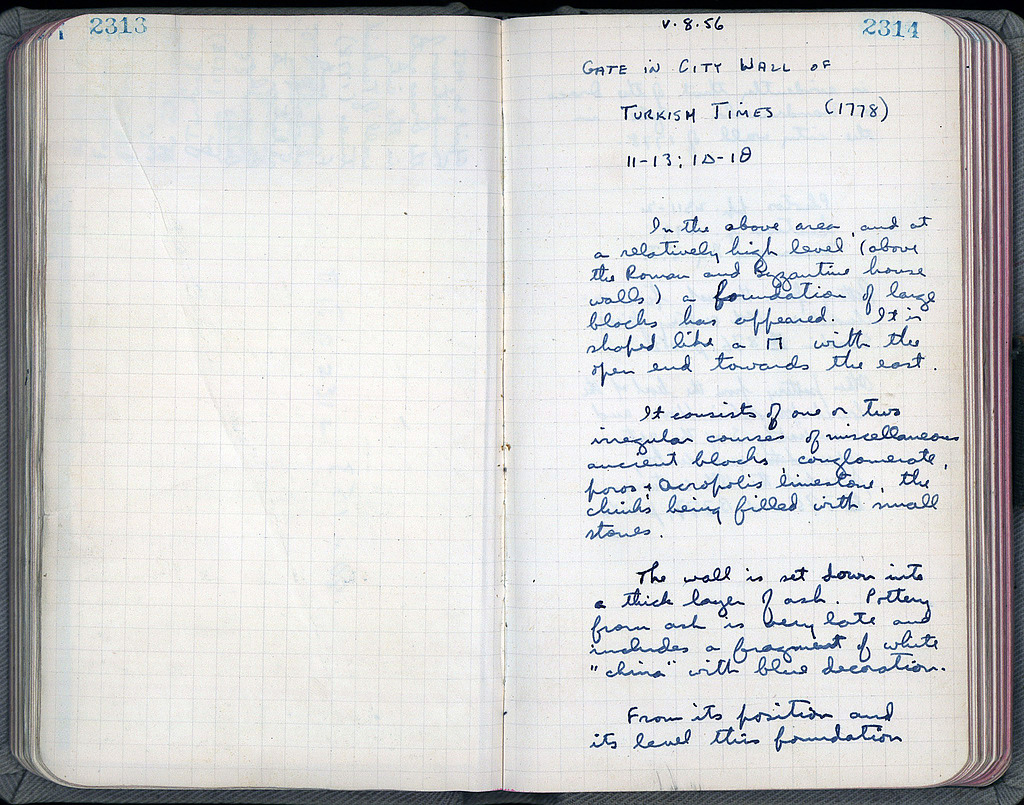 2313
V.8.56
2314
GATE IN CITY WALL OF
TURKISH TIMES (1778)
11-13; ΙΔ-ΙΘ
In the above area, and at
a relatively high level (above
the Roman and Byzantine house
walls) a foundation of large
blocks has appeared. It is
shaped like a Π with the
open end towards the east.
It consists of one or two
irregular courses of miscellaneous
ancient blocks, conglomerate,
poros + Acropolis limestone, the
chinks being filled with small
stones.
The wall is set down into
a thick layer of ash. Pottery
from ash is very late and
includes a fragment of white
"china" with blue decoration.
From its position and
its level this foundation